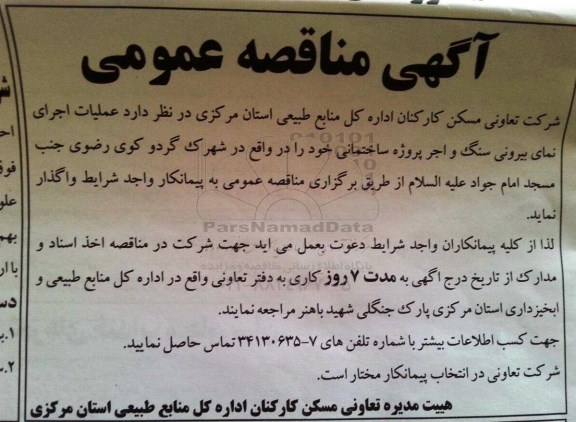 آگهی مناقصه عمومی
شرکت تعاونی مسکن کارکنان اداره کل منابع طبیعی استان مرکزی در نظر دارد عملیات اجرای
نمای بیرونی سنگ و اجر پروژه ساختمانی خود را در واقع در شهرک گردو کوی رضوی جنب
مسجد امام جواد علیه السلام از طریق برگزاری مناقصه عمومی به پیمانکار واجد شرایط واگذار
نماید.
لذا از کلیه پیمانکاران واجد شرایط دعوت بعمل می اید جهت شرکت در مناقصه اخذ اسناد و
مدارک از تاریخ درج اگهی به مدت ۷ روز کاری به دفتر تعاونی واقع در اداره کل منابع طبیعی و
ابخیزداری استان مرکزی پارک جنگلی شهید باهنر مراجعه نمایند.
جهت کسب اطلاعات بیشتر با شماره تلفن های ۷-۳۴۱۳۰۶۳۵ تماس حاصل نمایید.
شرکت تعاونی در انتخاب پیمانکار مختار است.
هییت مدیره تعاونی مسکن کارکنان اداره کل منابع طبیعی استان مرکزی
ParsNamadData